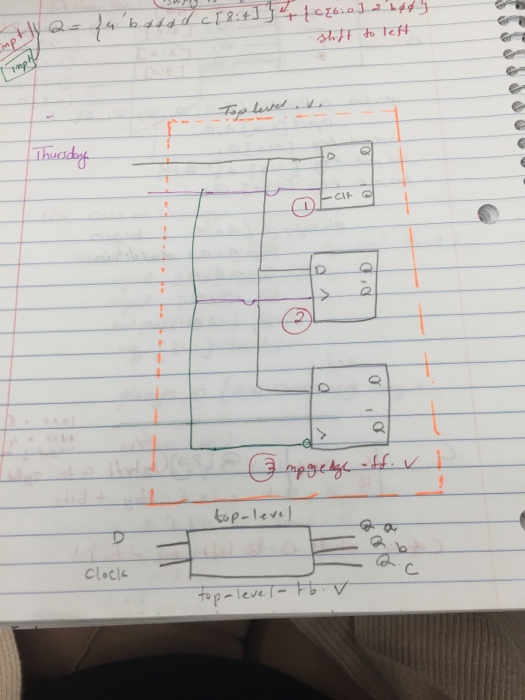 impt|| Q = {4'bøøøø c[8:4]} + {c[6:0] 2'bøø}
impt
shift to left
Top level .v.
Thursday
D Q
Clk Q
1
D Q
> Q
2
D Q
> Q
3
-ff.v
top-level
D Q a
Q b
Clock Q c
top-level-tb.v